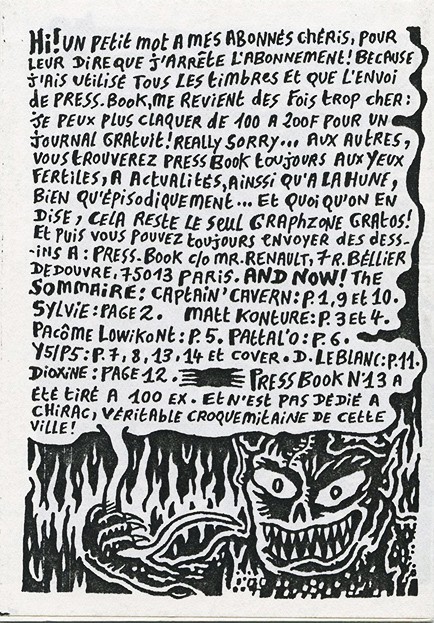 Hi! UN PETIT MOT A MES ABONNÉS CHÉRIS, POUR
LEUR DIRE QUE J'ARRÊTE L'ABONNEMENT! BECAUSE
J'AIS UTILISÉ TOUS LES TIMBRES ET QUE L'ENVOI
DE PRESS. BOOK, ME REVIENT DES FOIS TROP CHER:
JE PEUX PLUS CLAQUER DE 100 A 200F POUR UN
JOURNAL GRATUIT! REALLY SORRY... AUX AUTRES,
VOUS TROUVEREZ PRESS BOOK TOUJOURS AUX YEUX
FERTILES, A ACTUALITÉS, AINSSI QU'A LA HUNE,
BIEN QU'ÉPISODIQUEMENT... ET QUOI QU'ON EN
DISE, CELA RESTE LE SEUL GRAPHZONE GRATOS!
ET PUIS VOUS POUVEZ TOUJOURS ENVOYER DES DESS-
-INS A: PRESS. BOOK C/O MR. RENAULT, 7 R. BELLIER
DEDOUVRE, 75013 PARIS. AND NOW! THE
SOMMAIRE: CAPTAIN' CAVERN: P.1, 9 ET 10.
SYLVIE: PAGE 2. MATT KONTURE: P.3 ET 4.
PACÔME LOWIKONT: P.5. PATTAL'O: P.6.
Y5/P5: P.7, 8, 13, 14 ET COVER. D. LEBLANC: P.11.
DIOXINE: PAGE 12. PRESS BOOK N°13 A
ÉTÉ TIRÉ A 100 EX. ET N'EST PAS DÉDIÉ A
CHIRAC, VÉRITABLE CROQUEMITAINE DE CETTE
VILLE!